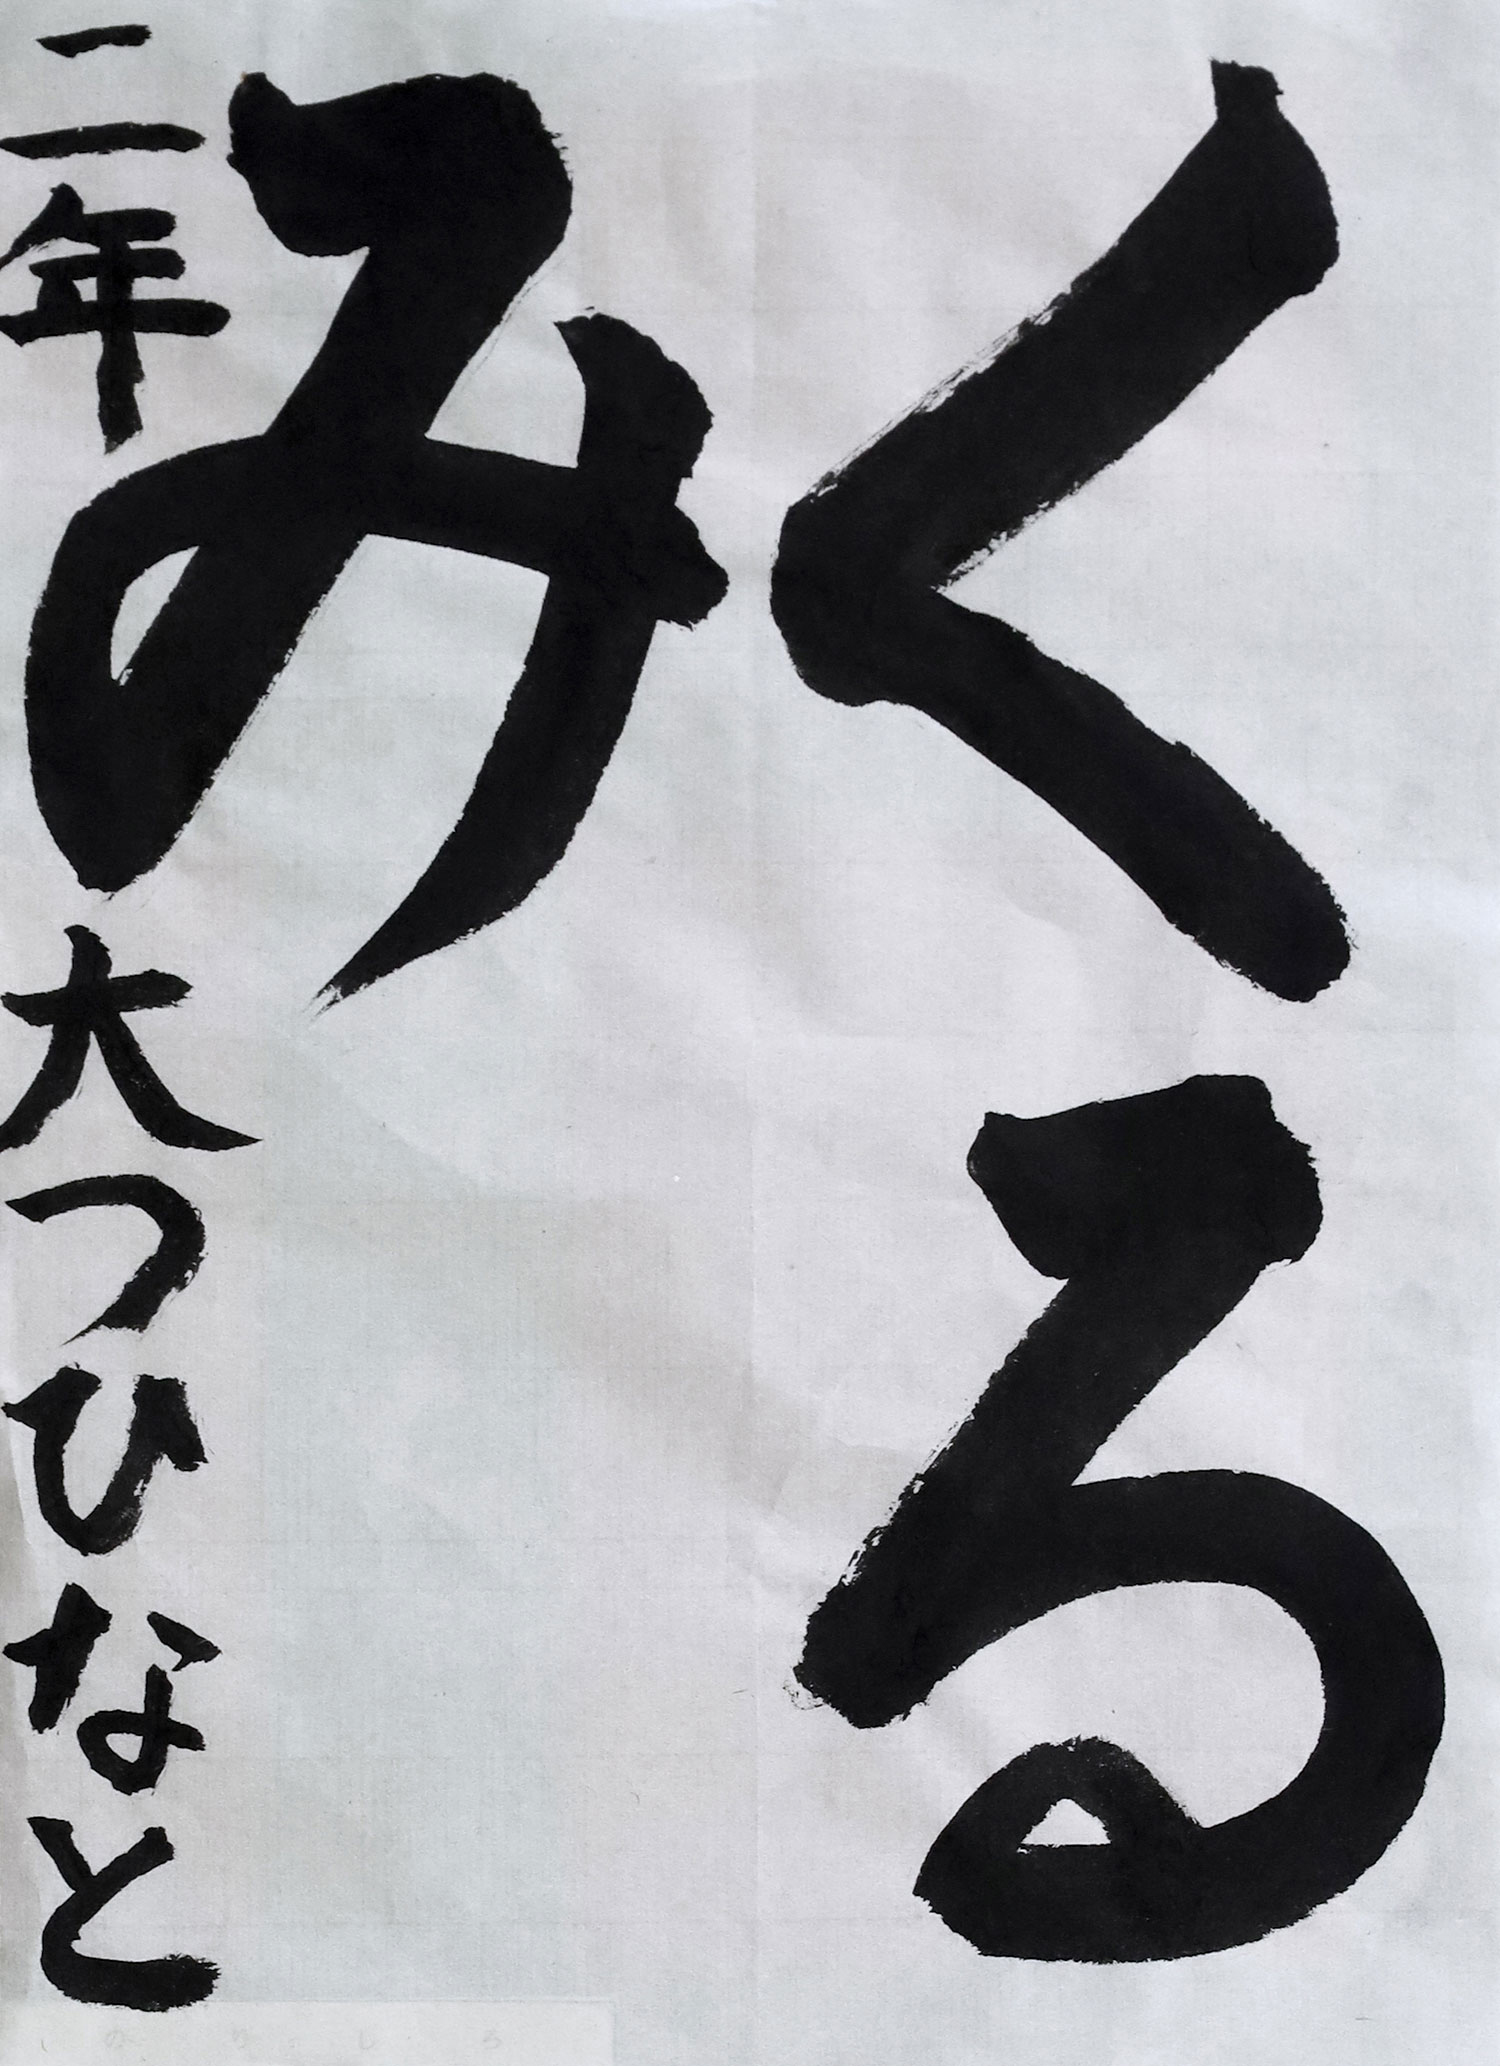 くる
み
二年 大つひなと